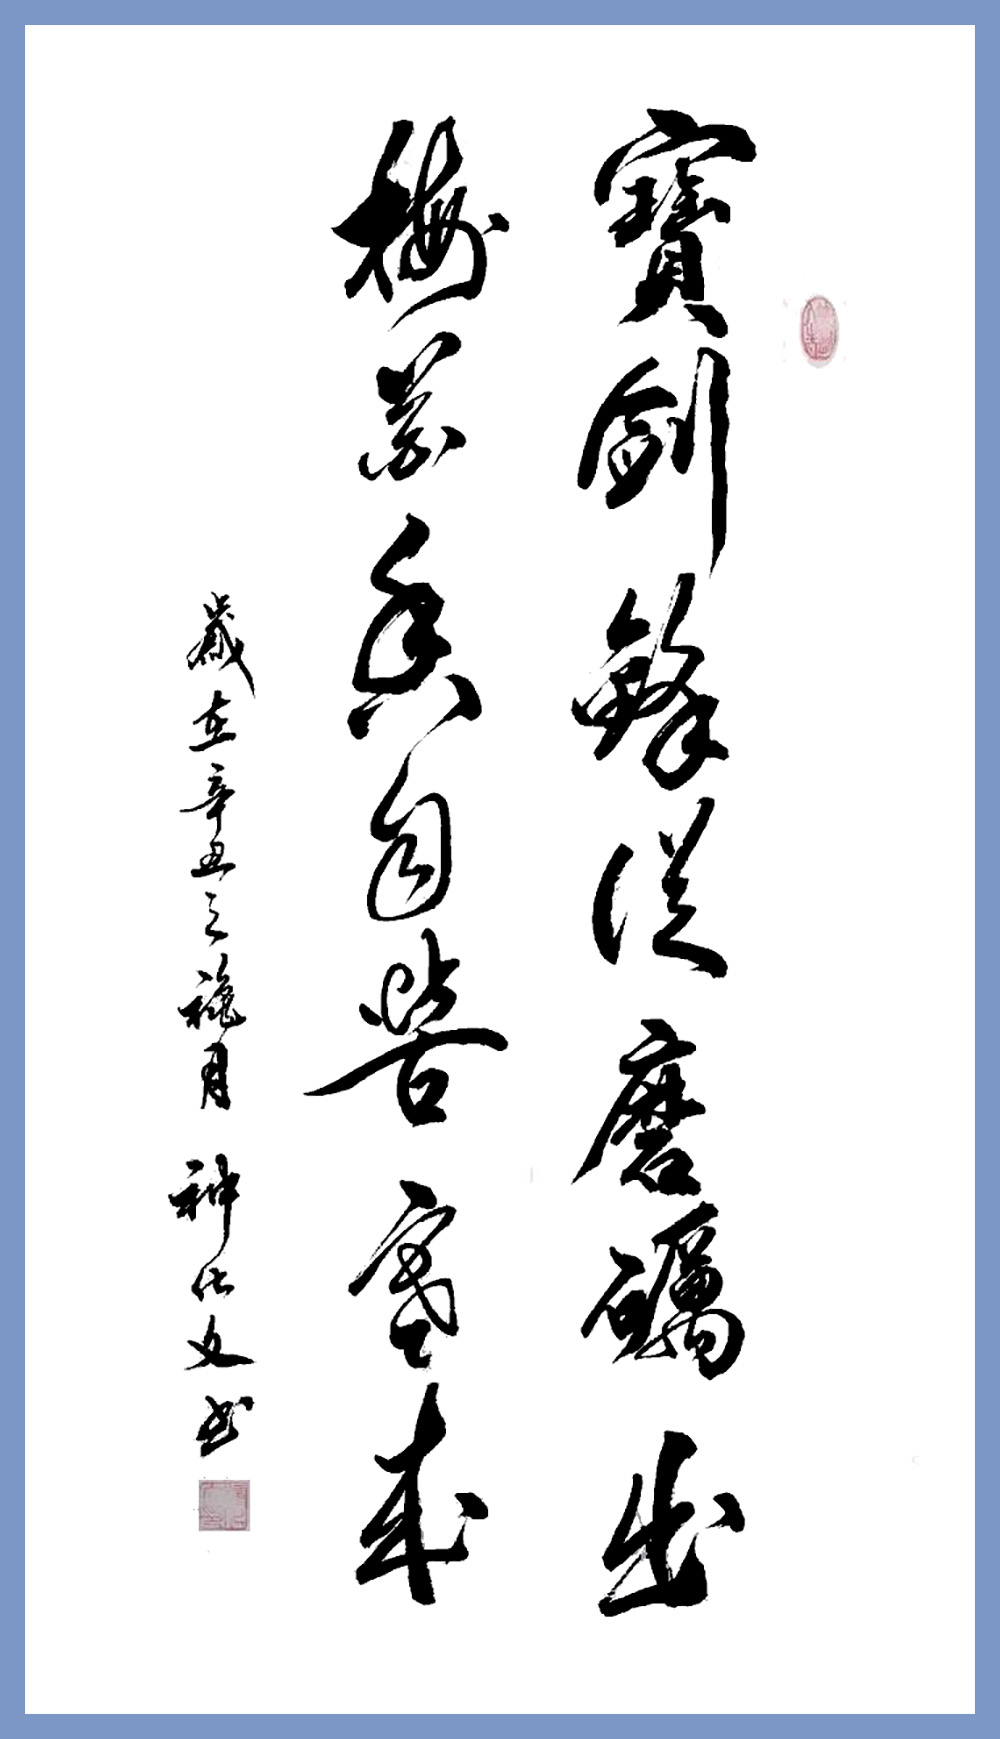 寶劍鋒從磨礪出
梅花香自苦寒来
歲在辛丑之穐月 神化文书